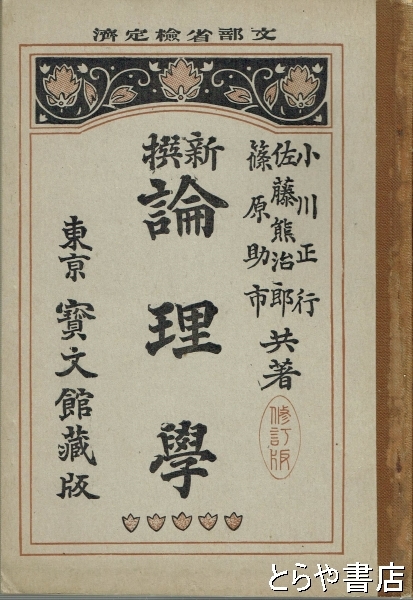 文部省検定済
小川正行
佐藤熊治郎
篠原助市
共著
修訂版
新撰
論理學
東京 寶文館藏版
とらや書店